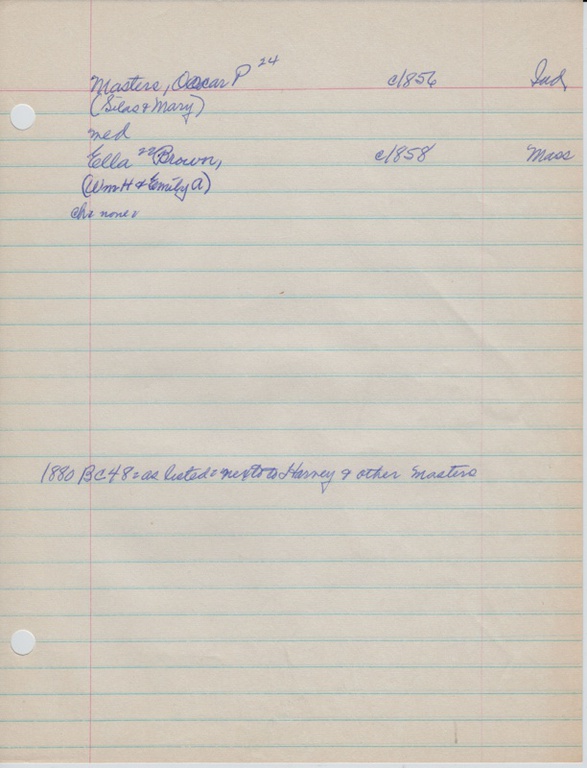 Masters, Oscar P 24 c1856 Ind,
(Silas & Mary)
med
Ella 22 Brown, c1858 Mass
(Wm H & Emily A)
ch: none:
1880 BC48: as listed: next to Harvey & other Masters